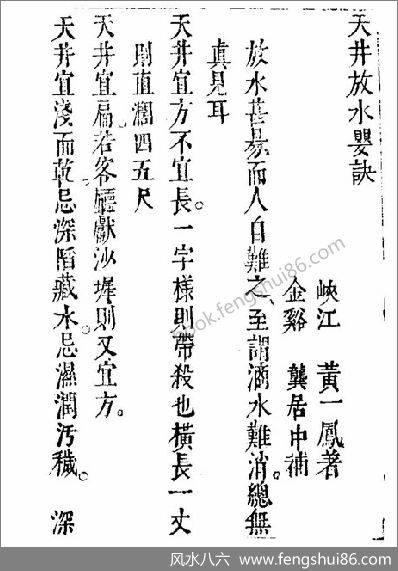 天井放水要訣
峽江 黃一鳳著
金谿 龔居中補
放水甚易而人自難之、至謂滴水難消。總無
真見耳
天井宜方不宜長。一字樣則帶殺也橫長一丈
則直濶四五尺
天井宜扁。若客廳獻沙墀則又宜方。
天井宜淺而乾忌深陷藏水忌濕潤汚穢。 深
book.fengshui86.com
风水八六 · www.fengshui86.com